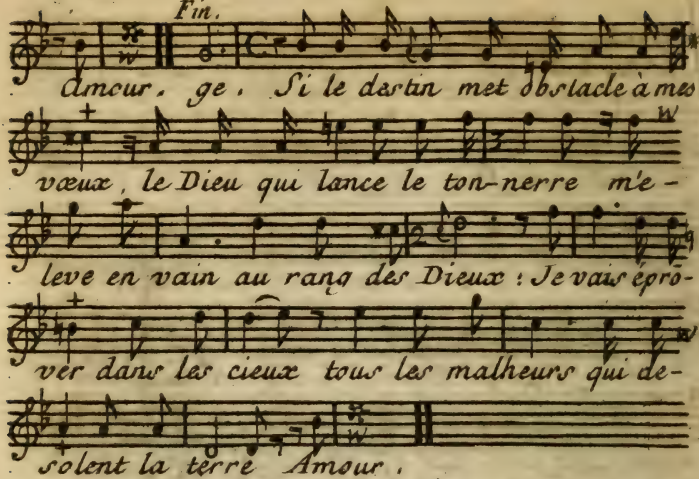 Fin.
Amour. ge. Si le destin met obstacle à mes
vœux, le Dieu qui lance le ton-nerre m'e-
leve en vain au rang des Dieux : Je vais épro-
ver dans les cieux tous les malheurs qui de-
solent la terre Amour.